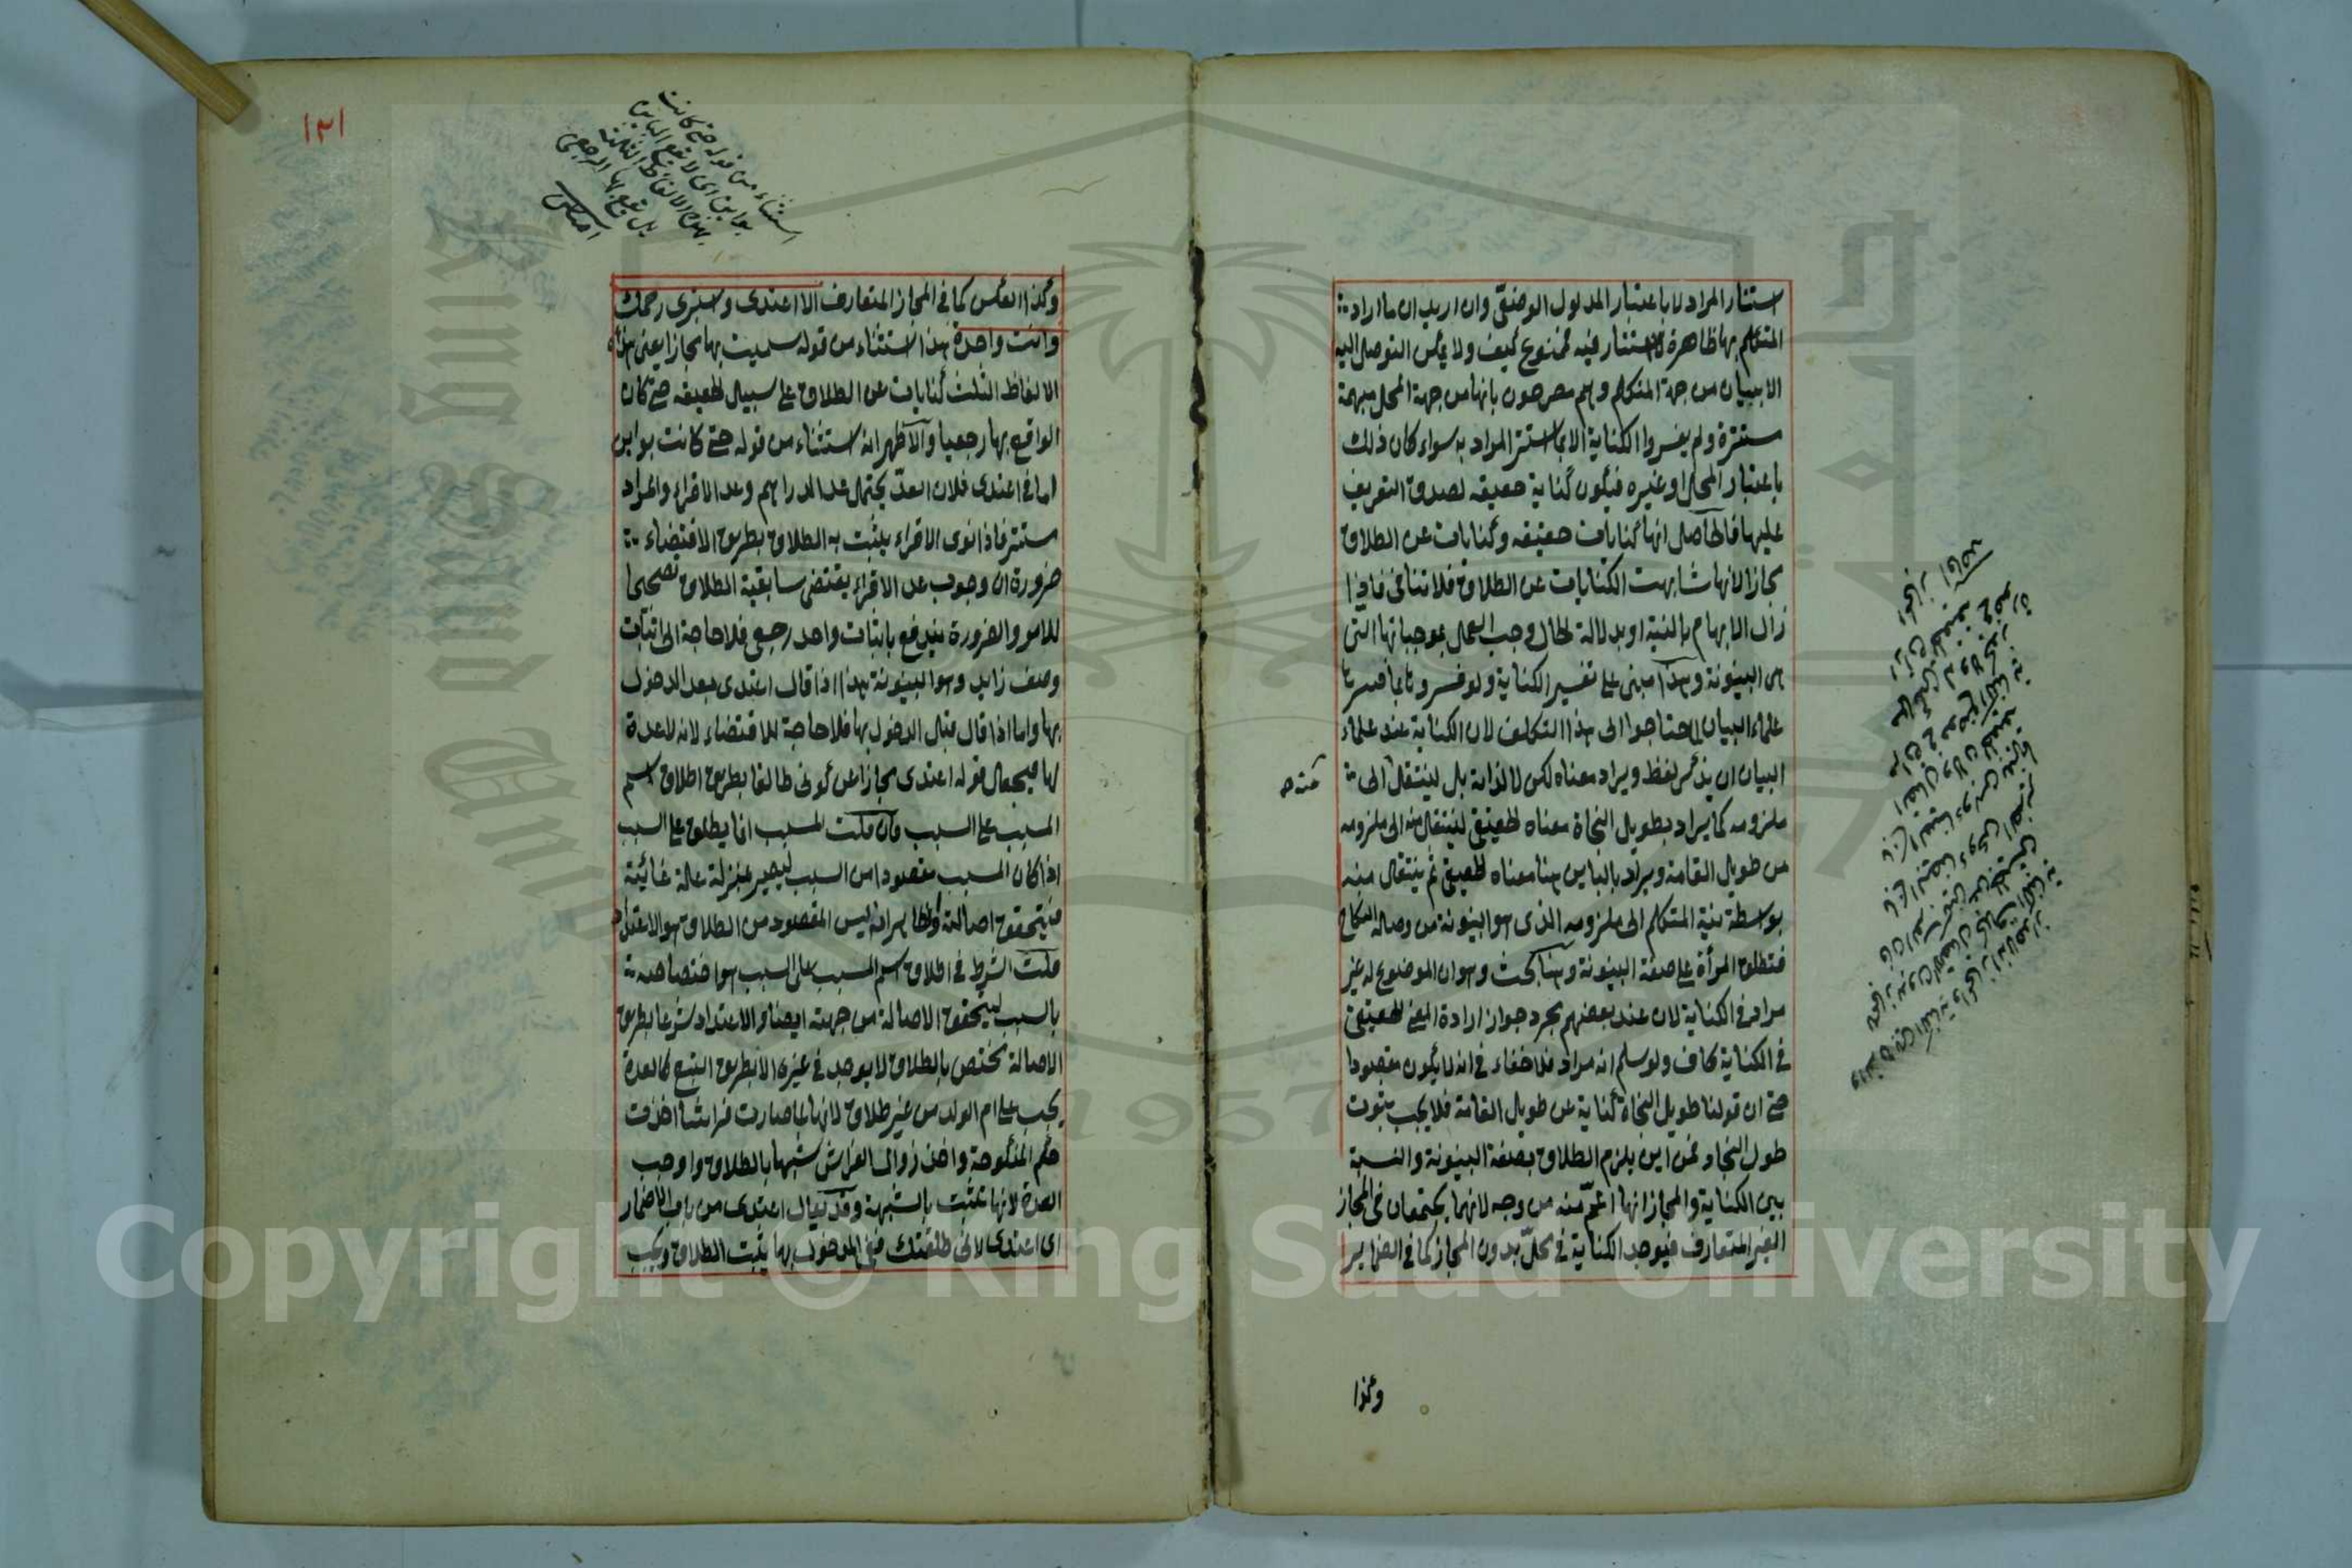 استتار المراد لا باعتبار المدلول الوضعي وان اريد ان ما اراد
المتكلم بها ظاهرة لا استتار فيه فممنوع كيف ولا يمكن التوصل اليه
الا ببيان من جهة المتكلم وهم مصرحون بانها من جهة المحل مبهمة
مستترة ولم يفسروا الكناية الا بما استتر المراد به سواء كان ذلك
باعتبار المحل او غيره فيكون كناية حقيقه لصدق التعريف
عليها فالحاصل انها كنايات حقيقه وكنايات عن الطلاق
مجازا لانها شابهت الكنايات عن الطلاق فلا تنافى فاذا
زال الابهام بالنية او بدلالة الحال وجب العمل بموجباتها التى
هى البينونة وهذا مبنى على تفسير الكناية ولو فسروها بما فسرها
علماء البيان لما احتاجوا الى هذا التكلف لان الكناية عند علماء
البيان ان يذكر لفظ ويراد معناه لكن لا لذاته بل لينتقل الى
ملزومه كما يراد بطويل النجاة معناه الحقيقى لينتقل منه الى ملزومه
من طويل القامة ويراد بالباين هنا معناه الحقيقى ثم ينتقل منه
بواسطة نية المتكلم الى ملزومه الذى هو البينونة من وصلة النكاح
فتطلق المرأة على صفة البينونة وهنا بحث وهو ان الموضوع له غير
مراد فى الكناية لان عند بعضهم مجرد جواز ارادة المعنى الحقيقى
فى الكناية كاف ولو سلم انه مراد فلا خفاء فى انه لا يكون مقصودا
حتى ان قولنا طويل النجاة كناية عن طويل القامة فلا يجب ثبوت
طول النجاد فمن اين يلزم الطلاق بصفة البينونة والنسبة
بين الكناية والمجاز انها اعم منه من وجه لانهما يجتمعان فى المجاز
الغير المتعارف فيوجد الكناية فى محل بدون المجاز كما فى الضراير
وكذا
١٢١
استثناء من قوله حتى كانت
بواين اى لا يقع الباين
بهذه الالفاظ الثلثة
بل يقع بها الرجعى
وكذا العكس كما فى المجاز المتعارف الا اعتدى واستبرى رحمك
وانت واحدة هذا استثناء من قوله سميت بها مجازا يعنى هذه
الالفاظ الثلث كنايات عن الطلاق على سبيل الحقيقه حتى كان
الواقع بها رجعيا والاظهر انه استثناء من قوله حتى كانت بواين
اما فى اعتدى فلان العد يحتمل عد الدراهم وعد الاقراء والمراد
مستتر فاذا نوى الاقراء يثبت به الطلاق بطريق الاقتضاء
ضرورة ان وجوب عد الاقراء يقتضى سابقية الطلاق تصحيحا
للامر والضرورة يندفع باثبات واحد رجعى فلا حاجة الى اثبات
وصف زايد وهو البينونة هذا اذا قال اعتدى بعد الدخول
بها واما اذا قال قبل الدخول بها فلا حاجة للاقتضاء لانه لا عدة
لها فيجعل قوله اعتدى مجازا عن كونى طالقا بطريق اطلاق اسم
المسبب على السبب فان قلت المسبب انما يطلق على السبب
اذا كان المسبب مقصودا من السبب ليصير بمنزلة علة غائية
فيتحقق اصالته والظاهر انه ليس المقصود من الطلاق هو الاعتداد
قلت الشرط فى اطلاق اسم المسبب على السبب هو اختصاصه
بالسبب ليتحقق الاصالة من جهته ايضا والاعتداد شرعا بطريق
الاصالة مختص بالطلاق لا يوجد فى غيره الا بطريق التبع كالعدة
يجب على ام الولد من غير طلاق لانها لما صارت فراشا اخذت
حكم المنكوحة واخذ زوال الفراش شبها بالطلاق واوجب
العدة لانها تثبت بالشبهة وقد يقال اعتدى من باب الاضمار
اى اعتدى لانى طلقتك ففى المدخول بها يثبت الطلاق ويجب
Copyright © King Saud University
1957